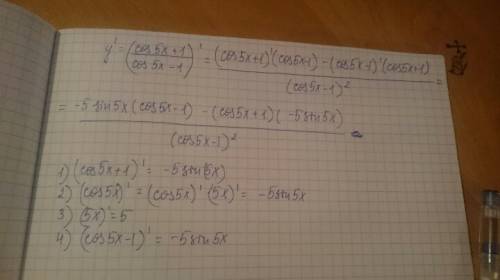 y' = (cos5x+1 / cos5x-1)' = (cos5x+1)'(cos5x-1) - (cos5x-1)'(cos5x+1) / (cos5x-1)² =
= -5sin5x(cos5x-1) - (cos5x+1)(-5sin5x) / (cos5x-1)²
1) (cos5x+1)' = -5sin(5x)
2) (cos5x)' = (cos5x)'·(5x)' = -5sin5x
3) (5x)' = 5
4) (cos5x-1)' = -5sin5x